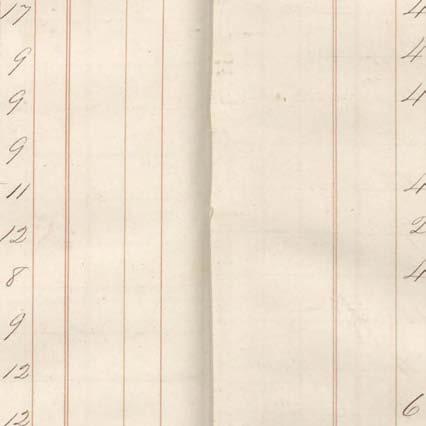 17 4
9 4
9 4
9
11 4
12 2
8 4
9
12
12 6